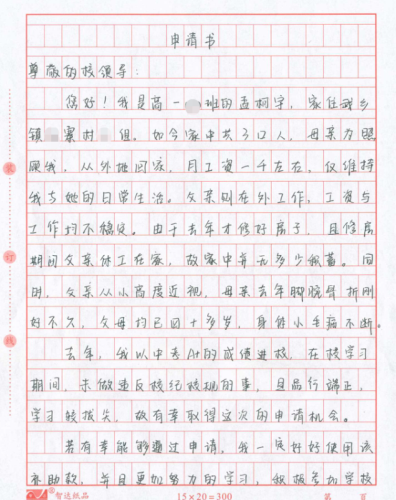 申请书
尊敬的校领导：
您好！我是高一 班的孟柯宇，家住
镇 寨村 组。如今家中共3口人，母亲为照
顾我，从外地回家，月工资一千左右，仅维持
我与她的日常生活。父亲则在外工作，工资与
工作均不稳定。由于去年才修好房子，且修房
期间父亲休工在家，故家中并无多少积蓄。同
时，父亲从小高度近视，母亲去年脚腕骨折刚
好不久，父母均已四十多岁，身体小毛病不断。
去年，我以中考A+的成绩进校，在校学习
期间，未做违反校纪校规的事，且品行端正，
学习较拔尖，故有幸取得这次的申请机会。
若有幸能够通过申请，我一定好好使用该
补助款，并且更加努力的学习，积极参加学校
装
订
线
智达纸品
15×20=300
第 页